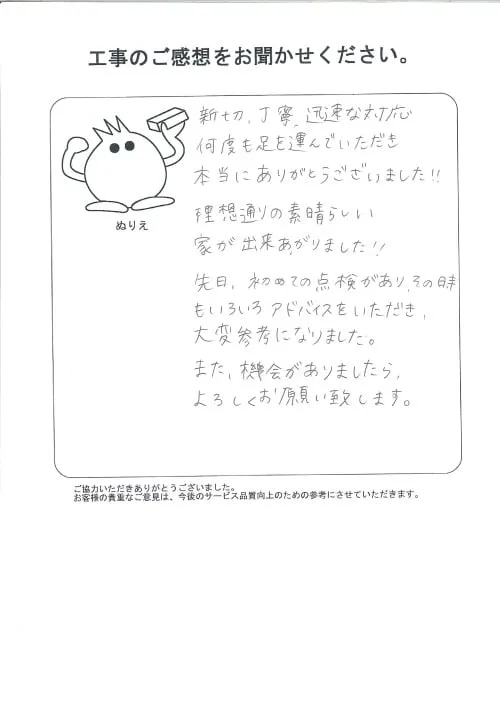 工事のご感想をお聞かせください。
ぬりえ
新切、丁寧、迅速な対応
何度も足を運んでいただき
本当にありがとうございました!!
理想通りの素晴らしい
家が出来あがりました!!
先日、初めての点検があり、その時
もいろいろアドバイスをいただき、
大変参考になりました。
また、機会がありましたら、
よろしくお願い致します。
ご協力いただきありがとうございました。
お客様の貴重なご意見は、今後のサービス品質向上のための参考にさせていただきます。